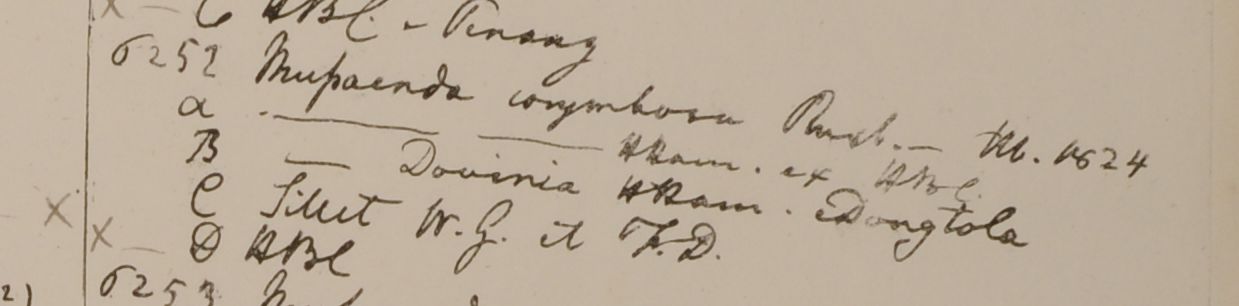 x — C HBC. - Penang
6252 Mussaenda corymbosa Roxb. — M. 1824
a . ——— ——— HHam. ex HBC.
B — Dovinia HHam. Dongtola
x C Sillet W. G. et F. D.
x — D HBC
2) 6253